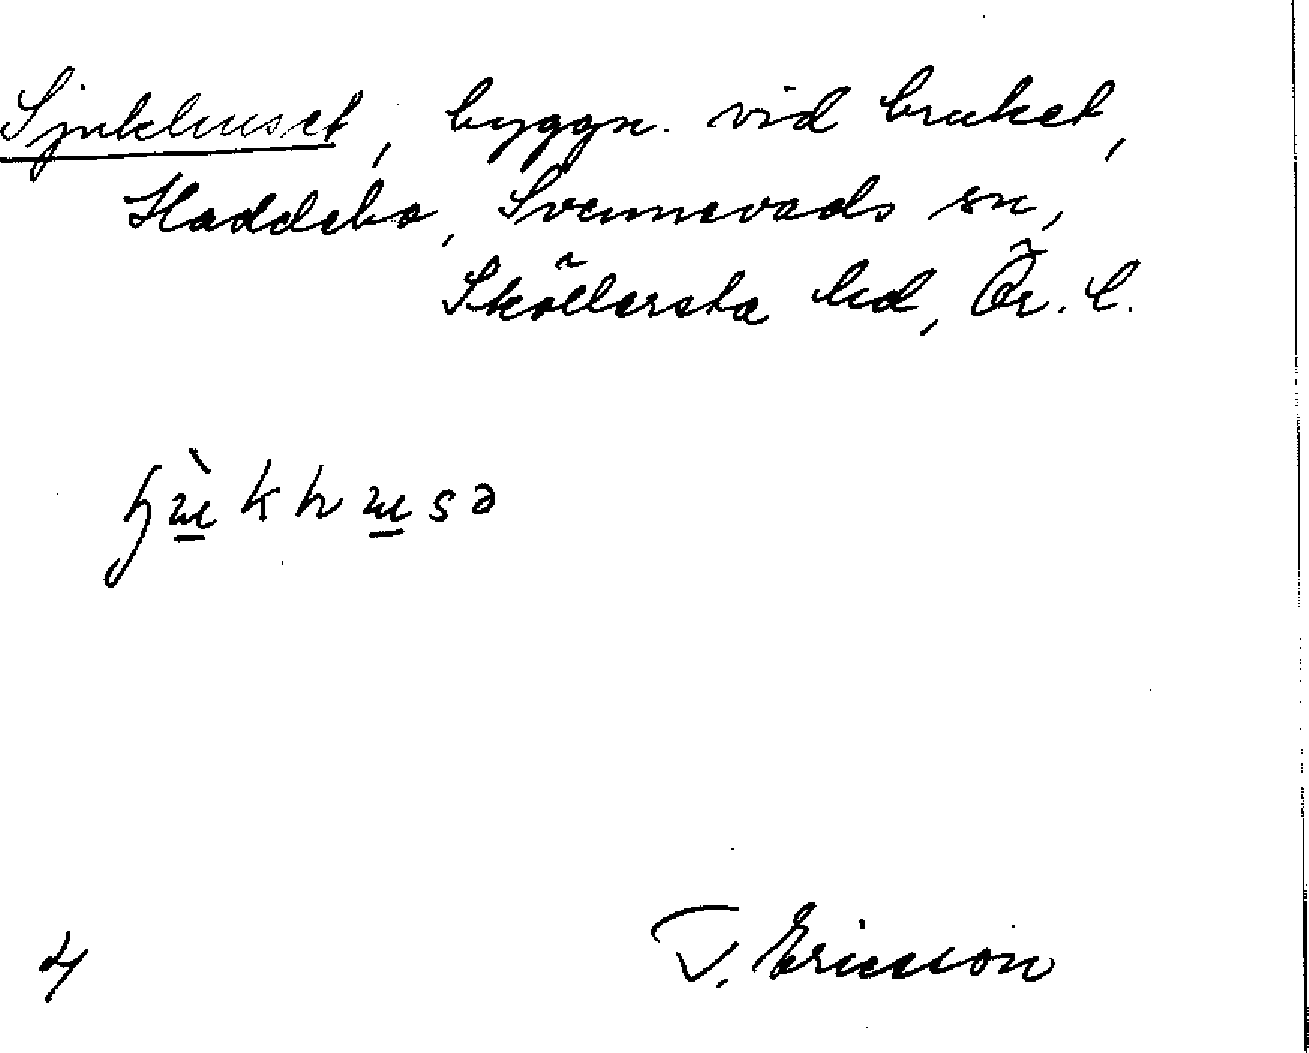 Sjukhuset, byggn. vid bruket,
Haddebo, Svennevads sn,
Sköllersta hd, Ör. l.
khusə
4
T. Ericsson